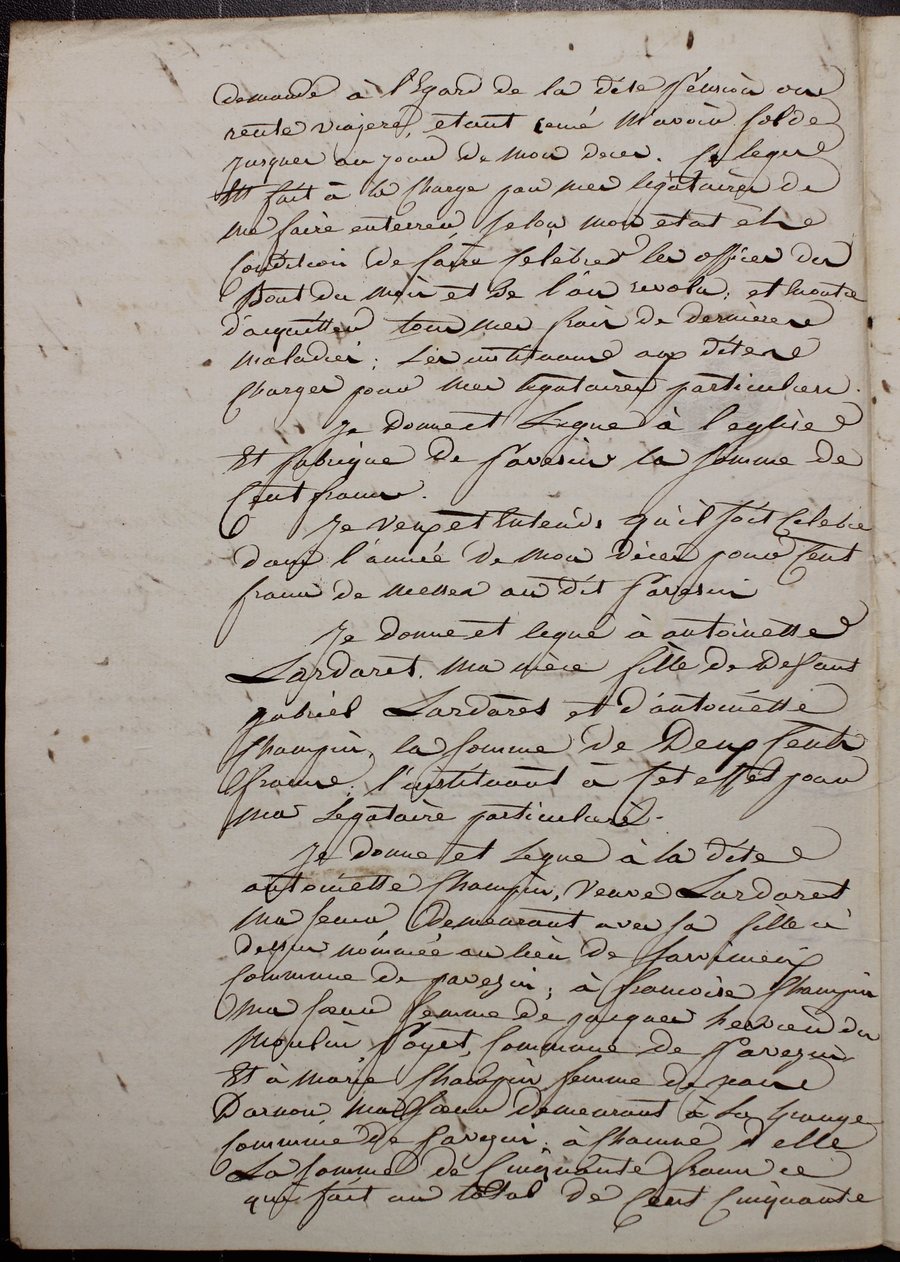 demande à l'Egard de la dite pension ou
rente viagere, etant censé m'avoir soldé
jusques au jour de mon deces. Ce legue
est fait à la charge par mes legataires de
me faire enterrer selon mon etat et
condition de faire Celebrer les offices du
Bout du mois et de l'an revolu; et
d'acquitter tous mes frais de dernieres
maladies; Les instituant aux dites
charges pour mes legataires particuliers.
Je donne et Legue à l'eglise
Et fabrique de Pavesin la somme de
Cent francs.
Je veux et entends qu'il soit celebré
dans l'année de mon déces pour Cent
francs de messes au dit Pavesin
Je donne et legue à antoinette
Lardaret ma niéce fille de defunt
gabriel Lardaret et d'antoinette
Champin, la somme de Deux Cents
francs; l'instituant à Cet effet pour
ma Legataire particuliere.
Je donne et Legue à la dite
antoinette Champin, veuve Lardaret
ma soeur demeurant avec sa fille ci
dessus nommée au lieu de
Commune de pavezin; à francoise Champin
ma soeur femme de jacques Hervier du
Moulin Payet, Commune de Pavezin
Et à marie Champin femme de
Darnon ma soeur demeurant à La Grange
Commune de Pavezin; à Chacune d'elle
La somme de Cinquante francs ce
qui fait un total de Cent Cinquante